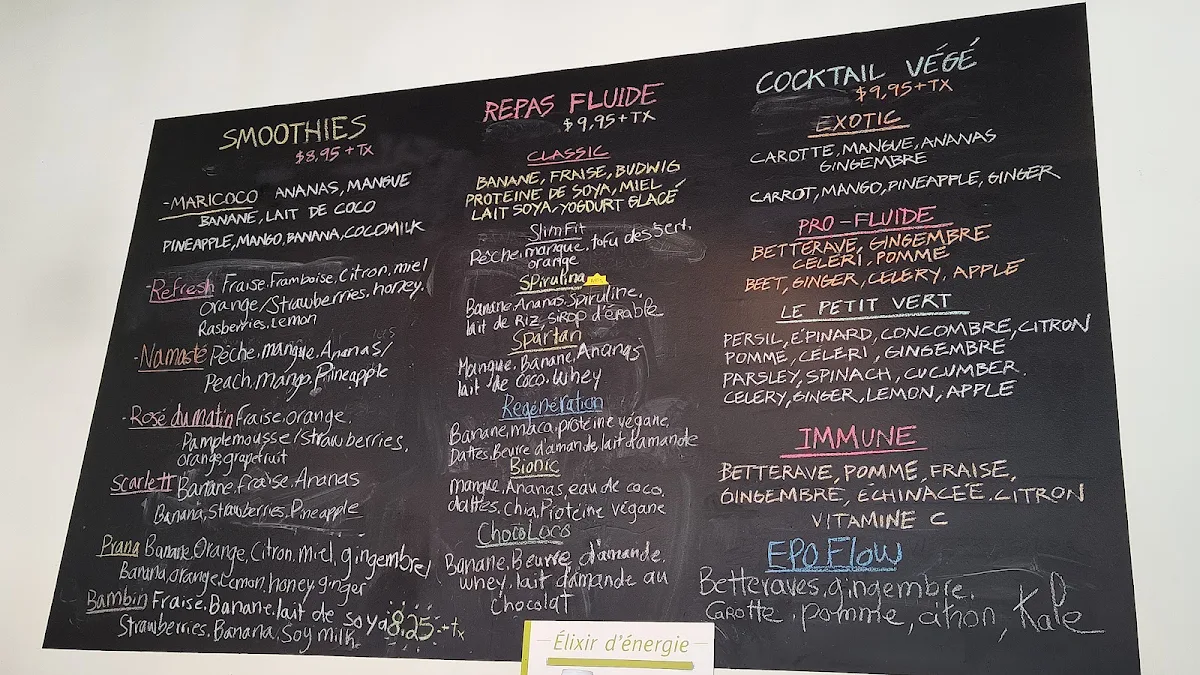 SMOOTHIES
$8,95 + TX
-MARICOCO ANANAS, MANGUE
BANANE, LAIT DE COCO
PINEAPPLE, MANGO, BANANA, COCOMILK
-Refresh Fraise. Framboise. Citron. miel
orange/Strawberries. honey.
Rasberries. Lemon
-Namasté Pêche, mangue. Ananas/
Peach, mango, Pineapple
-Rosé du matin Fraise. orange.
Pamplemousse/strawberries,
orange, grapefruit
Scarlett Banane. fraise. Ananas
Banana, Strawberries. Pineapple
Prana Banane. Orange, Citron, miel, gingembre/
Banana, orange, Lemon, honey, ginger
Bambin Fraise. Banane. lait de soya 8.25 + tx
Strawberries. Banana. Soy milk
REPAS FLUIDE
$9,95 + TX
CLASSIC
BANANE, FRAISE, BUDWIG
PROTEINE DE SOYA, MIEL
LAIT SOYA, YOGOURT GLACÉ
SlimFit
Pêche, mangue. tofu dessert.
orange
Spirulina
Banane. Ananas. Spiruline.
lait de RIZ, SIROP d'érable
Spartan
Mangue. Banane, Ananas
lait de coco. Whey
Regénération
Banane, maca, protéine végane,
Dattes. Beurre d'amande, lait d'amande
Bionic
mangue, Ananas, eau de coco,
dattes, chia, Protéine végane
ChocoLoco
Banane. Beurre d'amande.
whey. lait d'amande au
chocolat
COCKTAIL VÉGÉ
$9,95 + TX
EXOTIC
CAROTTE, MANGUE, ANANAS
GINGEMBRE
CARROT, MANGO, PINEAPPLE, GINGER
PRO-FLUIDE
BETTERAVE, GINGEMBRE
CÉLERI, POMME
BEET, GINGER, CELERY, APPLE
LE PETIT VERT
PERSIL, ÉPINARD, CONCOMBRE, CITRON
POMME, CÉLERI, GINGEMBRE
PARSLEY, SPINACH, CUCUMBER.
CELERY, GINGER, LEMON, APPLE
IMMUNE
BETTERAVE, POMME, FRAISE,
GINGEMBRE, ÉCHINACÉE. CITRON
VITAMINE C
EPO Flow
Betteraves, gingembre.
Carotte. pomme, citron, Kale
Élixir d'énergie